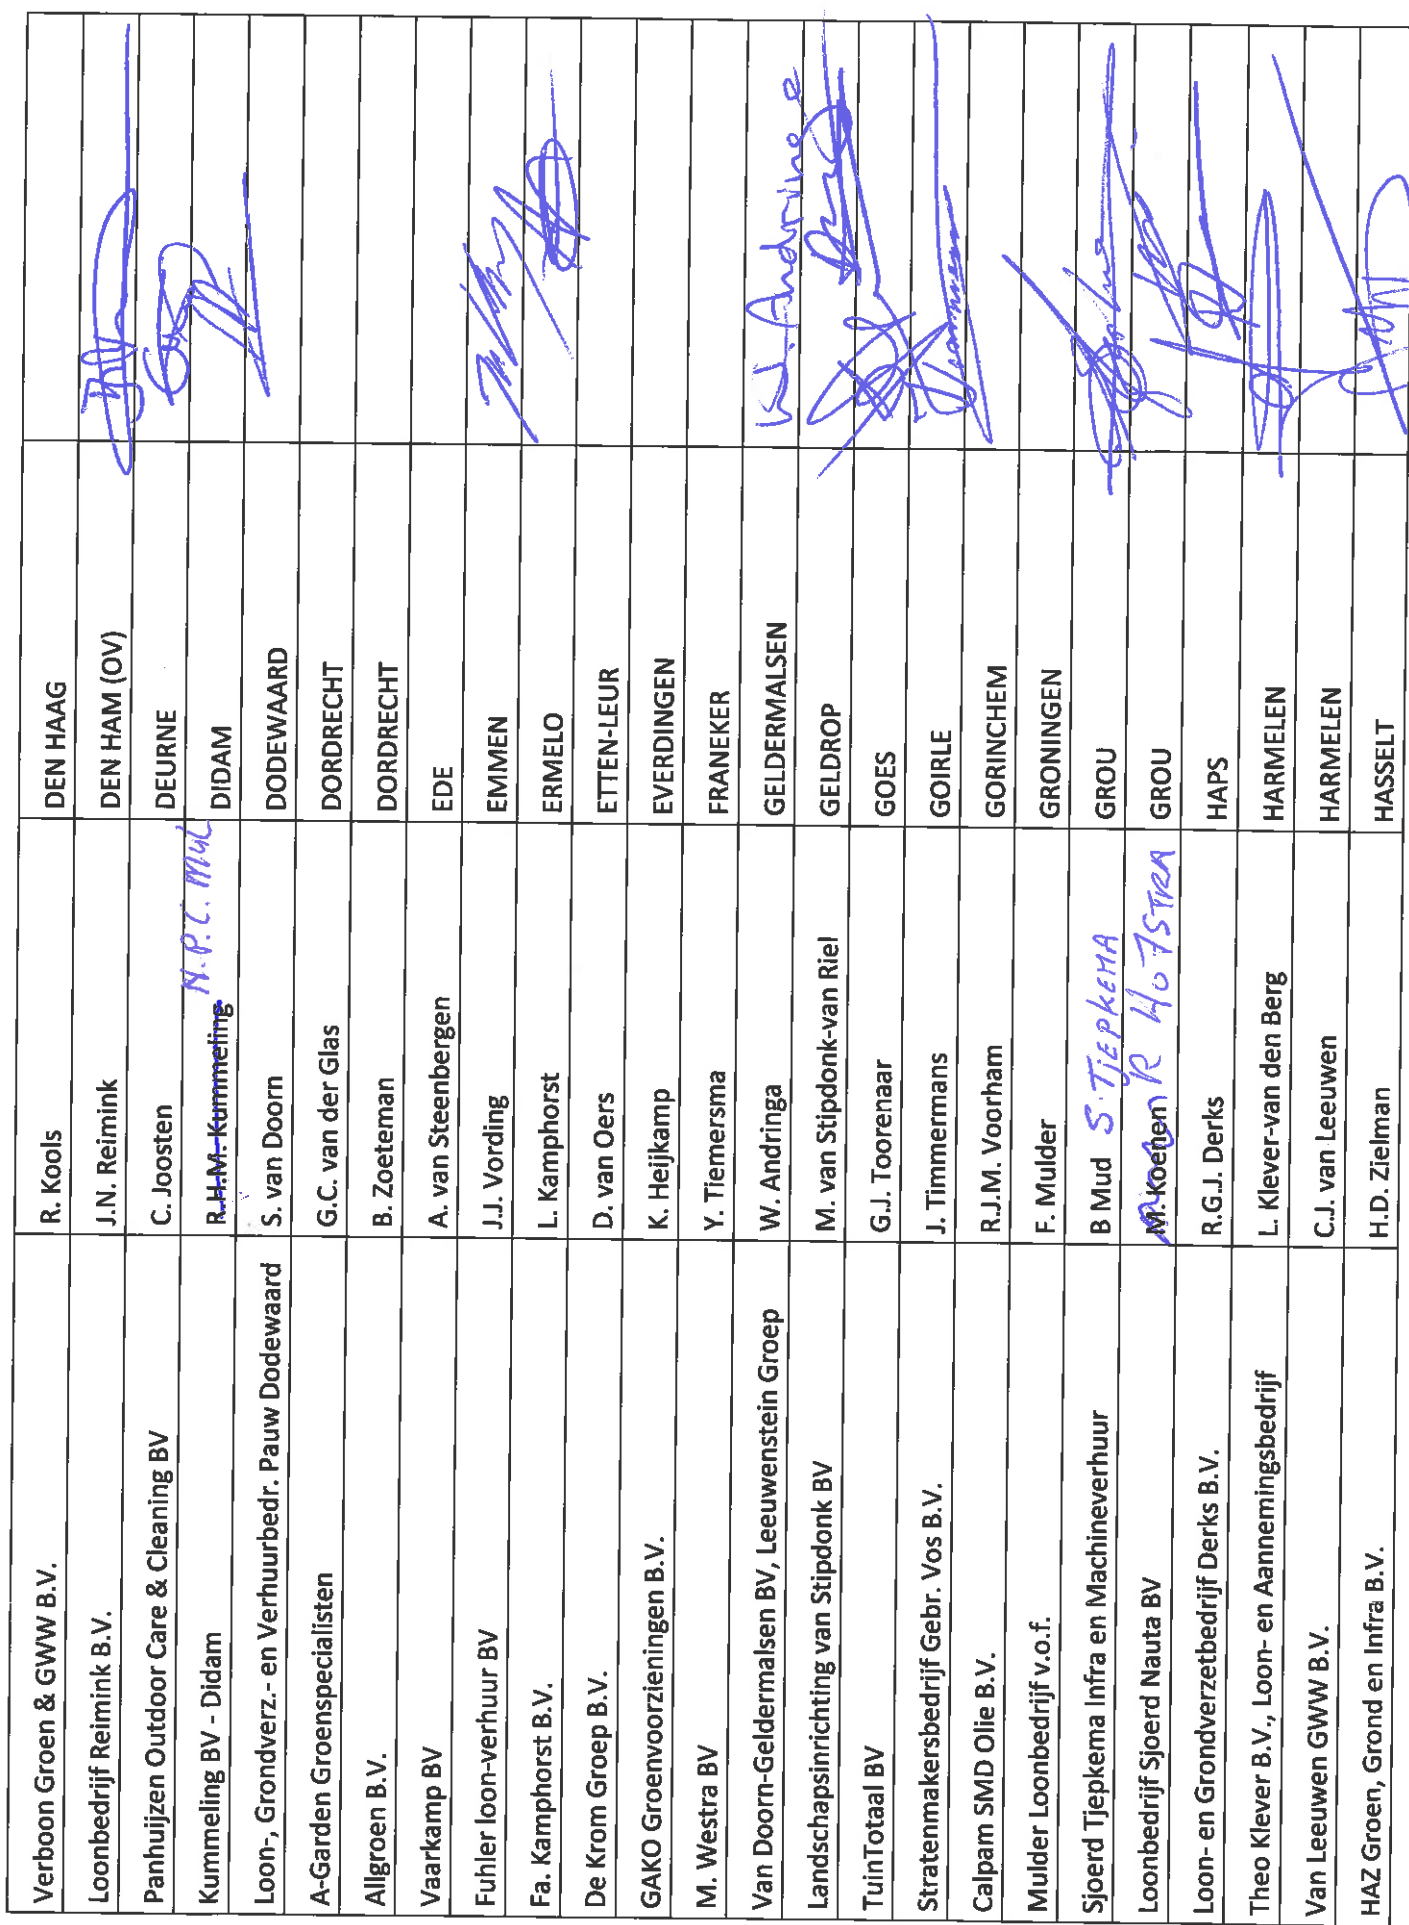 Verboon Groen & GWW B.V. R. Kools DEN HAAG
Loonbedrijf Reimink B.V. J.N. Reimink DEN HAM (OV)
Panhuijzen Outdoor Care & Cleaning BV C. Joosten DEURNE
Kummeling BV - Didam R.H.M. Kummeling N.P.C. Mul DIDAM
Loon-, Grondverz.- en Verhuurbedr. Pauw Dodewaard S. van Doorn DODEWAARD
A-Garden Groenspecialisten G.C. van der Glas DORDRECHT
Allgroen B.V. B. Zoeteman DORDRECHT
Vaarkamp BV A. van Steenbergen EDE
Fuhler loon-verhuur BV J.J. Vording EMMEN
Fa. Kamphorst B.V. L. Kamphorst ERMELO
De Krom Groep B.V. D. van Oers ETTEN-LEUR
GAKO Groenvoorzieningen B.V. K. Heijkamp EVERDINGEN
M. Westra BV Y. Tiemersma FRANEKER
Van Doorn-Geldermalsen BV, Leeuwenstein Groep W. Andringa GELDERMALSEN W. Andringa
Landschapsinrichting van Stipdonk BV M. van Stipdonk-van Riel GELDROP
TuinTotaal BV G.J. Toorenaar GOES
Stratenmakersbedrijf Gebr. Vos B.V. J. Timmermans GOIRLE
Calpam SMD Olie B.V. R.J.M. Voorham GORINCHEM
Mulder Loonbedrijf v.o.f. F. Mulder GRONINGEN
Sjoerd Tjepkema Infra en Machineverhuur B Mud S. TJEPKEMA GROU
Loonbedrijf Sjoerd Nauta BV M. Koenen R HOFSTRA GROU
Loon- en Grondverzetbedrijf Derks B.V. R.G.J. Derks HAPS
Theo Klever B.V., Loon- en Aannemingsbedrijf L. Klever-van den Berg HARMELEN
Van Leeuwen GWW B.V. C.J. van Leeuwen HARMELEN
HAZ Groen, Grond en Infra B.V. H.D. Zielman HASSELT